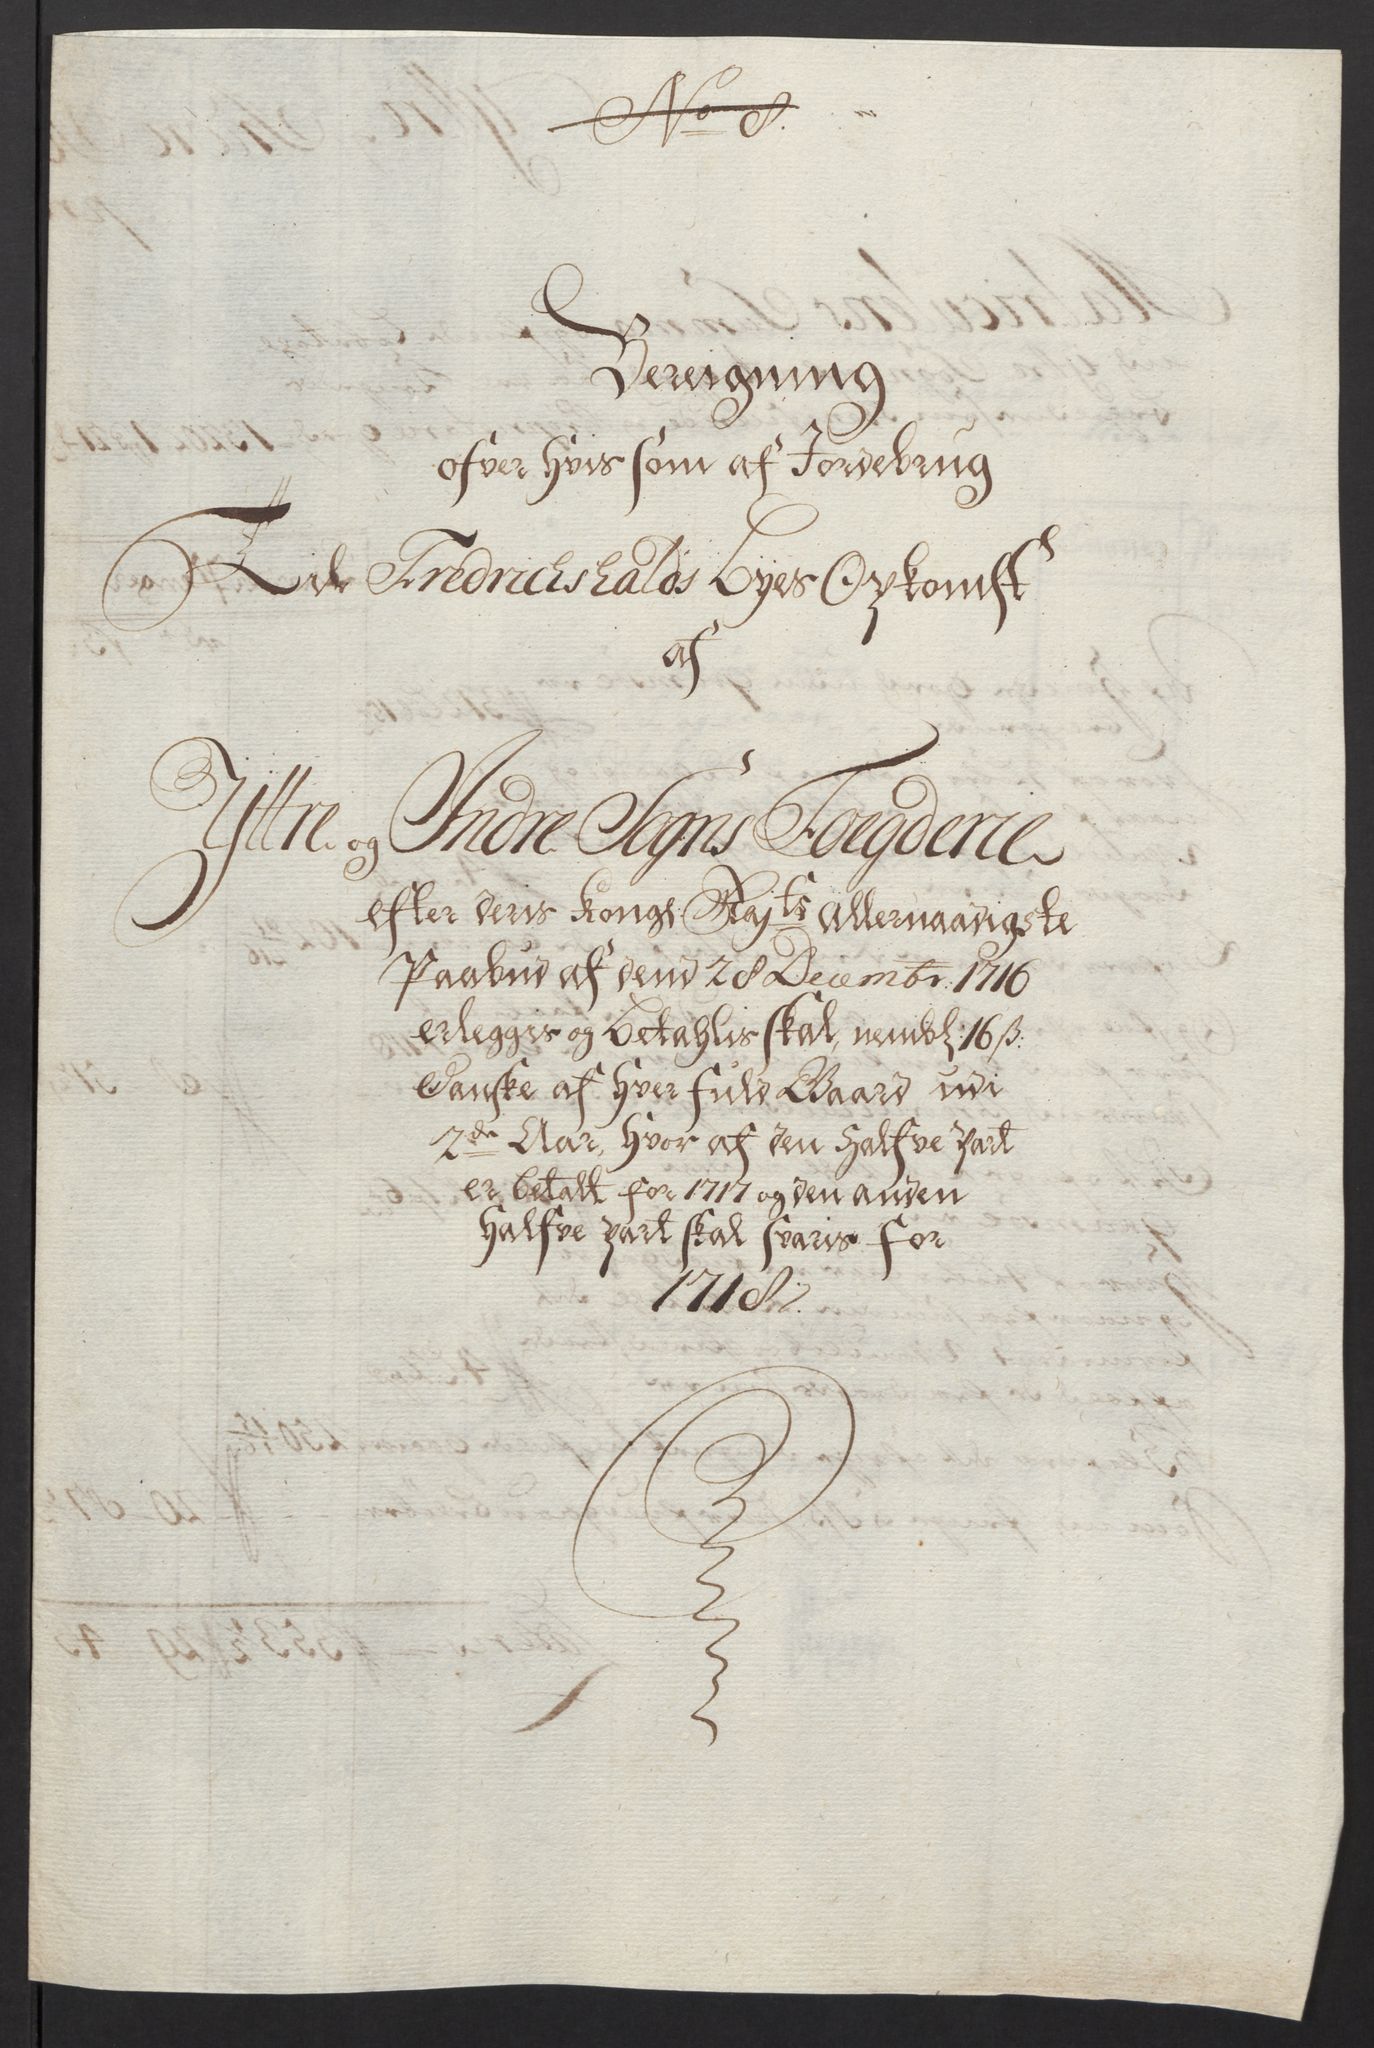 No 8.
Bereigning
ofver hvis som af Jordebrug
Till Fredrichshalds Byes Opkomst
af
Yttre og Indre Sogns Foegderie
efter deris Kongl: Mayts allernaadigste
Paabud af dend 28 Decembr: 1716
erleggis og betahlis skal, nembl: 16 ß:
Danske af hver fuld Gaard udi
2de Aar, hvor af den halfve part
er betalt for 1717 og den anden
halfve part skal svaris for
1718: